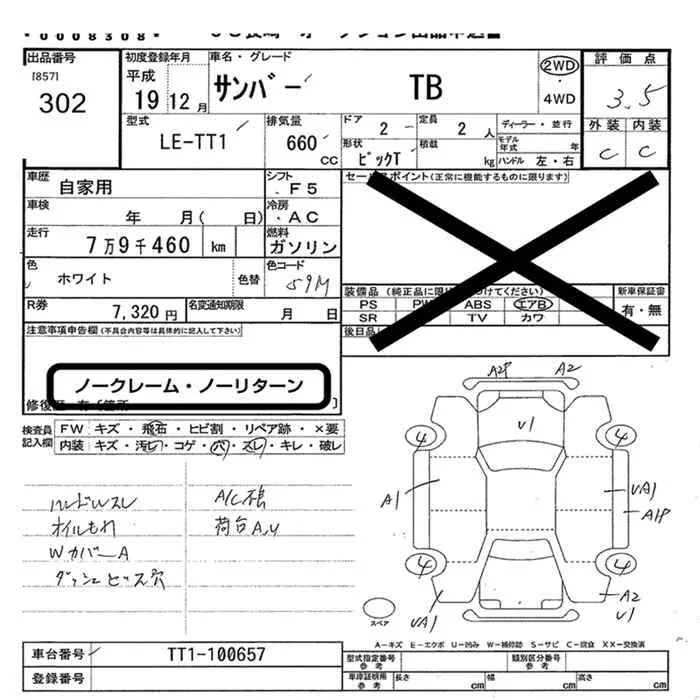 *0008308*
出品番号
[857]
302
初度登録年月
平成
19 12月
車名・グレード
サンバー TB
2WD
・
4WD
評価点
3.5
外装 内装
C C
型式
LE-TT1
排気量
660
CC
ドア
2
定員
2 人
形状
ピックT
積載
kg
ディーラー・並行
モデル年式 年
ハンドル 左・右
車歴
自家用
シフト
F5
車検
年 月( 日)
冷房
AC
走行
7万9千460 km
燃料
ガソリン
色
ホワイト
色替
色コード
59M
R券
7,320円
名変通知期限
月 日
セールスポイント(正常に機能するものに限ります)
装備品(純正品に限り
けてください)
PS PW ABS エアB
SR TV カワ
新車保証書
有・無
後日品
注意事項申告欄(不具合内容等は具体的に記入して下さい)
ノークレーム・ノーリターン
修復歴
検査員
記入欄
FW キズ・飛石・ヒビ割・リペア跡・×要
内装 キズ・汚レ・コゲ・穴・スレ・キレ・破レ
ハンドルスレ
オイルもれ
WカバーA
ダッシュビス穴
A/C不良
荷台A,U
A2P A2
U1
4 4
A1
UA1
A1P
4 4
UA1
A2
U1
スペア
A-キズ E-エクボ U-凹み W-補修跡 S-サビ C-腐食 XX-交換済
車台番号
TT1-100657
登録番号
型式指定番号
参考
類別区分番号
参考
車庫証明用
参考
長さ cm 幅 cm 高さ cm